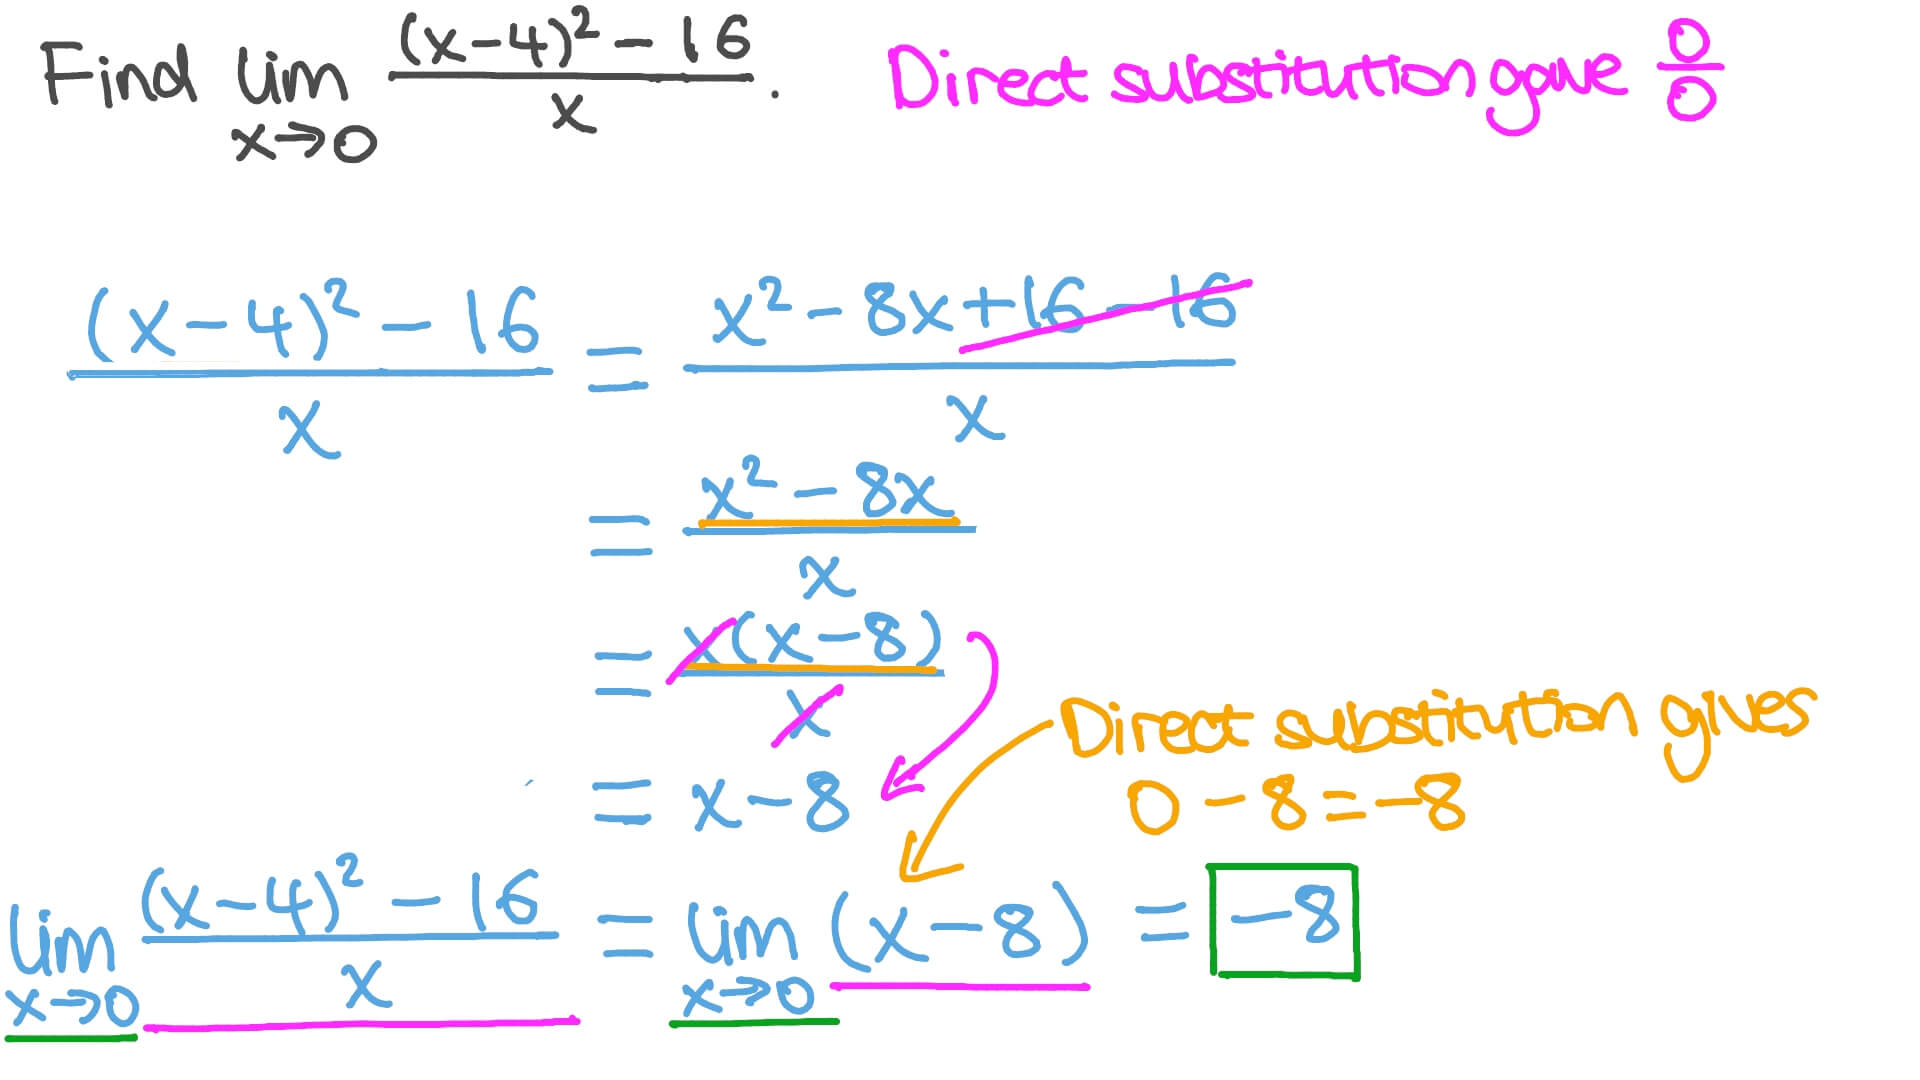 Find lim x→0 ((x-4)² - 16)/x . Direct substitution gave 0/0
((x-4)² - 16)/x = (x² - 8x + 16 - 16)/x
= (x² - 8x)/x
= x(x-8)/x
Direct substitution gives
= x - 8
0 - 8 = -8
lim x→0 ((x-4)² - 16)/x = lim x→0 (x-8) = -8